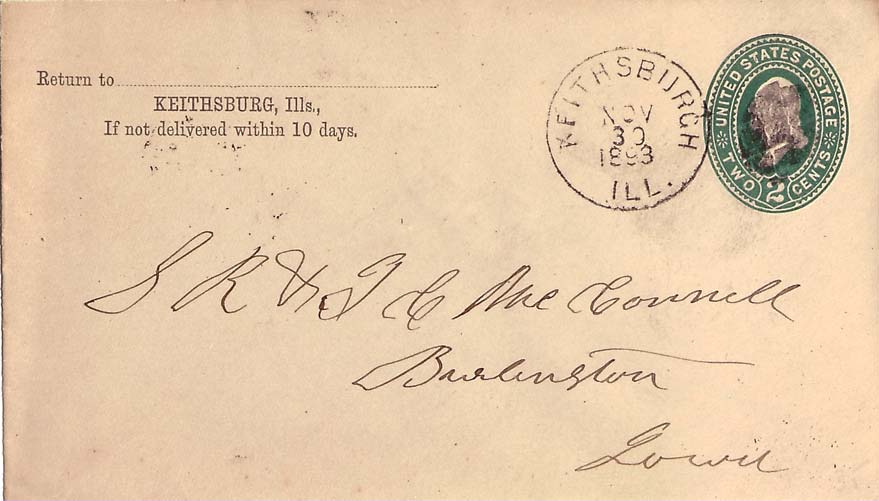 Return to
KEITHSBURG, Ills.,
If not delivered within 10 days.
KEITHSBURGH
NOV
30
1893
ILL.
UNITED STATES POSTAGE
TWO 2 CENTS
S R & J C McConnell
Burlington
Iowa